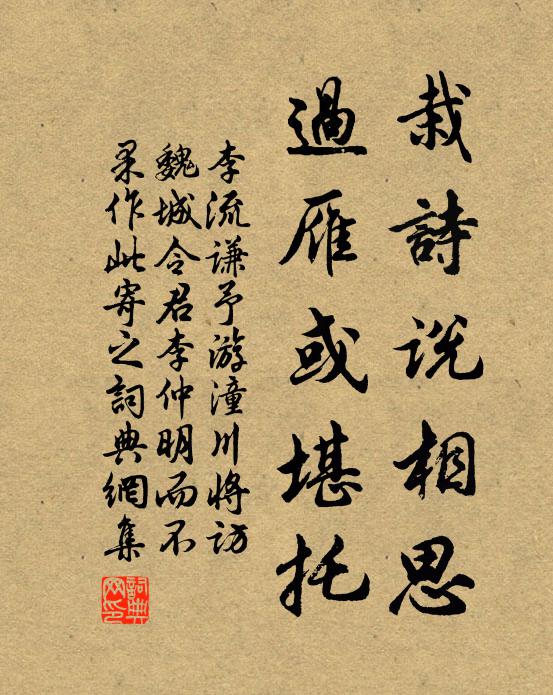 栽詩説相思
過雁或堪托
李流謙予游潼川將訪
魏城令君李仲明而不
果作此寄之詞典網集
詞典网印